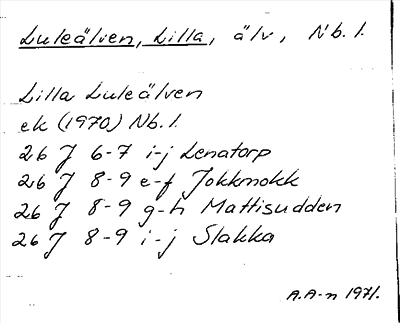 Luleälven, Lilla, älv, Nb. l.
Lilla Luleälven
ek (1970) Nb. l.
26 J 6-7 i-j Lenatorp
26 J 8-9 e-f Jokkmokk
26 J 8-9 g-h Mattisudden
26 J 8-9 i-j Slakka
A.A-n 1971.